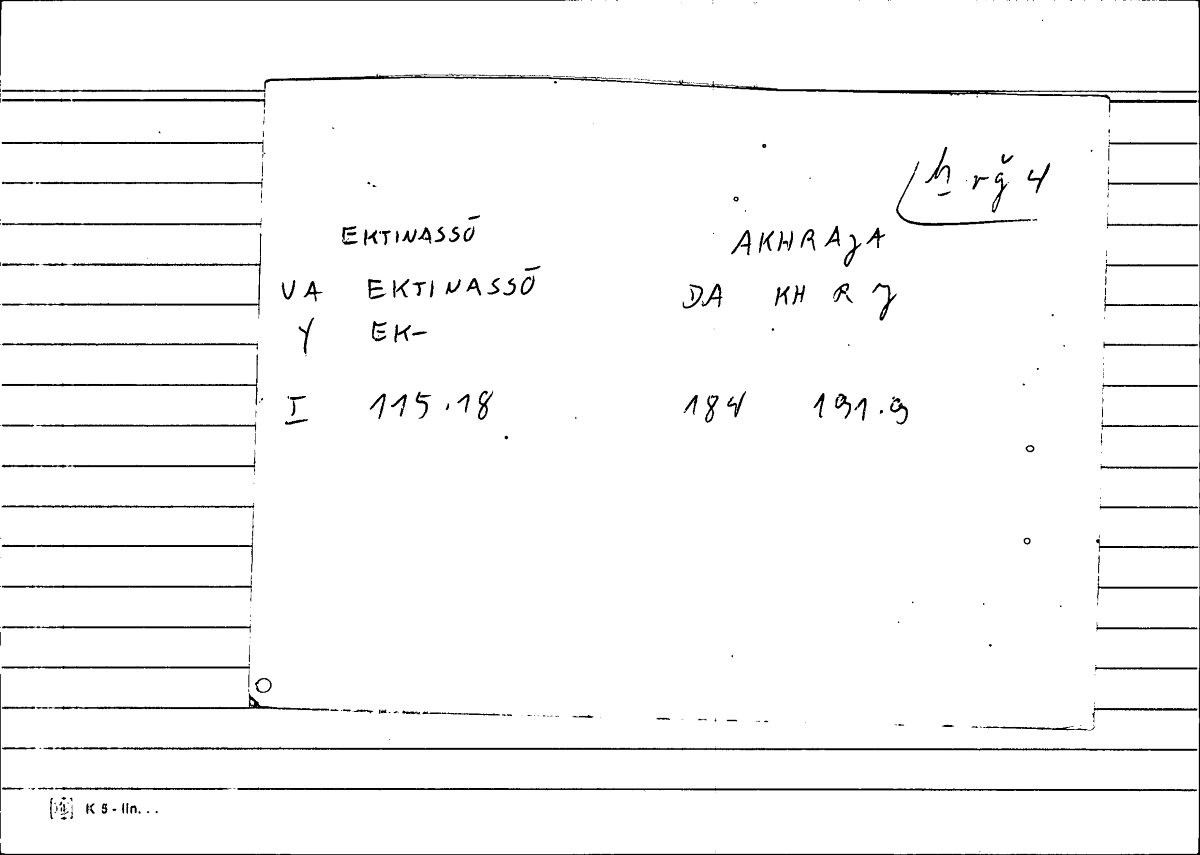 ẖ rǧ 4
EKTINASSŌ AKHRAJA
VA EKTINASSŌ DA KH R J
Y EK-
I 115.18 184 191.9
K 5 - lin. . .